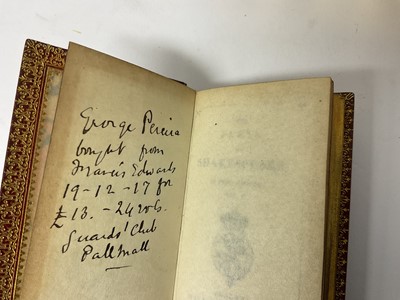 George Pereira
bought from
Francis Edwards
19-12-17 for
£13.-24 vols.
Guards' Club
Pall Mall
SHAKESPEARE